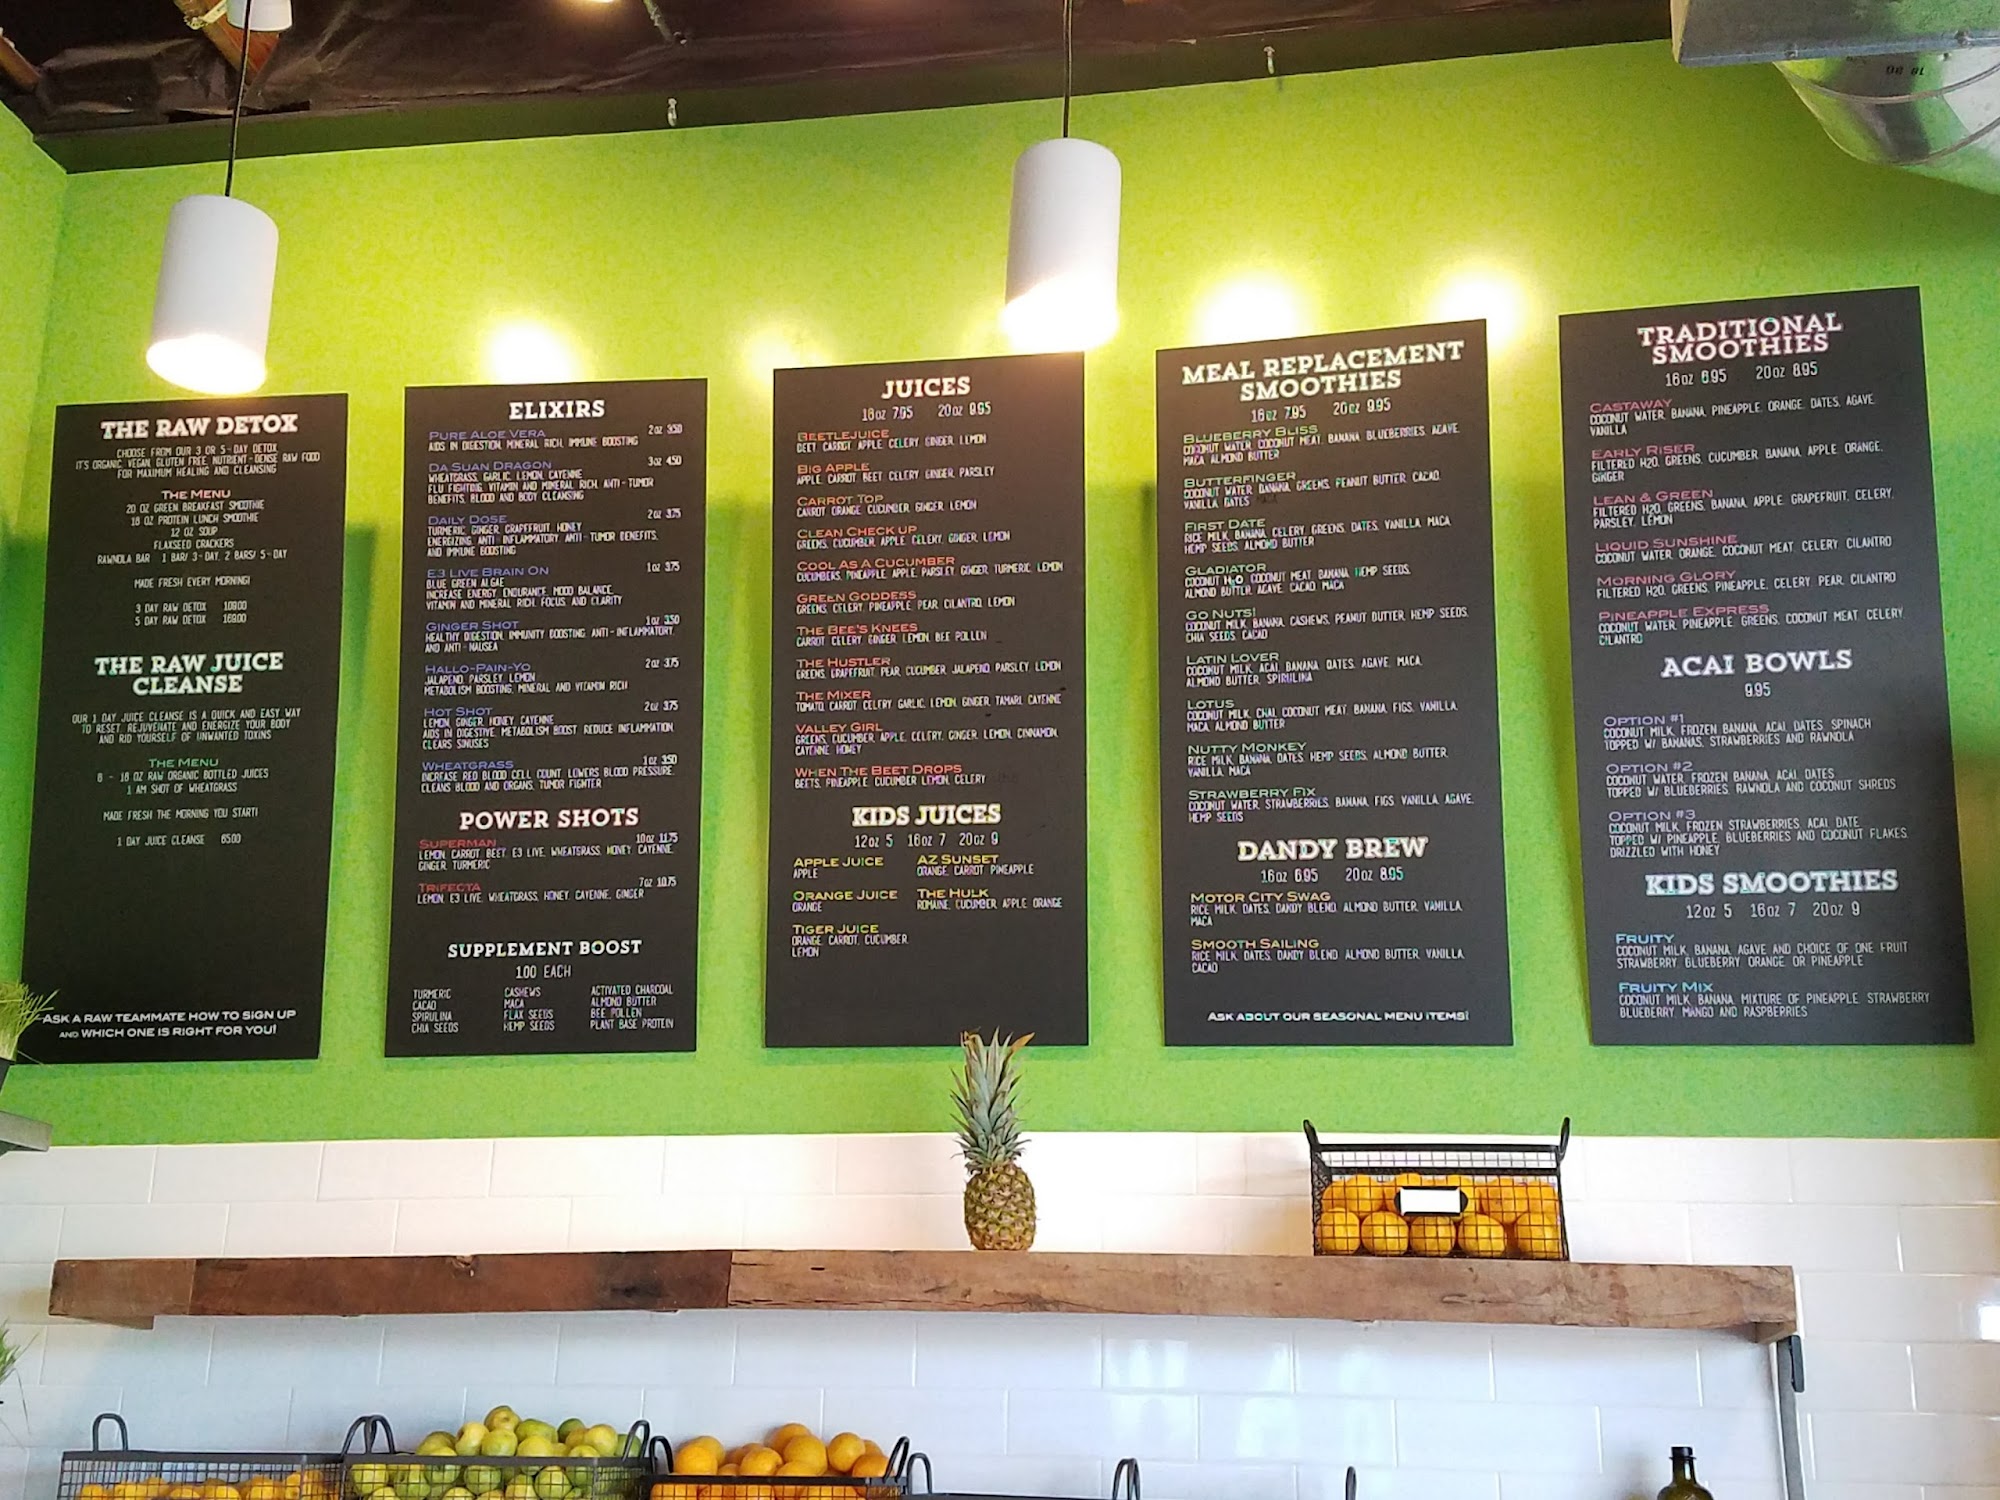 THE RAW DETOX
CHOOSE FROM OUR 3 OR 5-DAY DETOX
IT'S ORGANIC, VEGAN, GLUTEN FREE, NUTRIENT-DENSE RAW FOOD
FOR MAXIMUM HEALING AND CLEANSING
THE MENU
20 OZ GREEN BREAKFAST SMOOTHIE
16 OZ PROTEIN LUNCH SMOOTHIE
12 OZ SOUP
FLAXSEED CRACKERS
RAWNOLA BAR 1 BAR/ 3-DAY, 2 BARS/ 5-DAY
MADE FRESH EVERY MORNING!
3 DAY RAW DETOX 109.00
5 DAY RAW DETOX 169.00
THE RAW JUICE
CLEANSE
OUR 1 DAY JUICE CLEANSE IS A QUICK AND EASY WAY
TO RESET, REJUVENATE AND ENERGIZE YOUR BODY
AND RID YOURSELF OF UNWANTED TOXINS
THE MENU
6 - 16 OZ RAW ORGANIC BOTTLED JUICES
1 AM SHOT OF WHEATGRASS
MADE FRESH THE MORNING YOU START!
1 DAY JUICE CLEANSE 65.00
ASK A RAW TEAMMATE HOW TO SIGN UP
AND WHICH ONE IS RIGHT FOR YOU!
ELIXIRS
PURE ALOE VERA 2oz 3.50
AIDS IN DIGESTION, MINERAL RICH, IMMUNE BOOSTING
DA SUAN DRAGON 3oz 4.50
WHEATGRASS, GARLIC, LEMON, CAYENNE
FLU FIGHTING, VITAMIN AND MINERAL RICH, ANTI-TUMOR
BENEFITS, BLOOD AND BODY CLEANSING
DAILY DOSE 2oz 3.75
TURMERIC, GINGER, GRAPEFRUIT, HONEY
ENERGIZING, ANTI-INFLAMMATORY, ANTI-TUMOR BENEFITS,
AND IMMUNE BOOSTING
E3 LIVE BRAIN ON 1oz 3.75
BLUE GREEN ALGAE
INCREASE ENERGY, ENDURANCE, MOOD BALANCE,
VITAMIN AND MINERAL RICH, FOCUS, AND CLARITY
GINGER SHOT 1oz 3.50
HEALTHY DIGESTION, IMMUNITY BOOSTING, ANTI-INFLAMMATORY,
AND ANTI-NAUSEA
HALLO-PAIN-YO 2oz 3.75
JALAPENO, PARSLEY, LEMON
METABOLISM BOOSTING, MINERAL AND VITAMIN RICH
HOT SHOT 2oz 3.75
LEMON, GINGER, HONEY, CAYENNE
AIDS IN DIGESTIVE, METABOLISM BOOST, REDUCE INFLAMMATION,
CLEARS SINUSES
WHEATGRASS 1oz 3.50
INCREASE RED BLOOD CELL COUNT, LOWERS BLOOD PRESSURE,
CLEANS BLOOD AND ORGANS, TUMOR FIGHTER
POWER SHOTS
SUPERMAN 10oz 11.75
LEMON, CARROT, BEET, E3 LIVE, WHEATGRASS, HONEY, CAYENNE,
GINGER, TURMERIC
TRIFECTA 7oz 10.75
LEMON, E3 LIVE, WHEATGRASS, HONEY, CAYENNE, GINGER
SUPPLEMENT BOOST
1.00 EACH
TURMERIC CASHEWS ACTIVATED CHARCOAL
CACAO MACA ALMOND BUTTER
SPIRULINA FLAX SEEDS BEE POLLEN
CHIA SEEDS HEMP SEEDS PLANT BASE PROTEIN
JUICES
16oz 7.95 20oz 9.95
BEETLEJUICE
BEET, CARROT, APPLE, CELERY, GINGER, LEMON
BIG APPLE
APPLE, CARROT, BEET, CELERY, GINGER, PARSLEY
CARROT TOP
CARROT, ORANGE, CUCUMBER, GINGER, LEMON
CLEAN CHECK UP
GREENS, CUCUMBER, APPLE, CELERY, GINGER, LEMON
COOL AS A CUCUMBER
CUCUMBERS, PINEAPPLE, APPLE, PARSLEY, GINGER, TURMERIC, LEMON
GREEN GODDESS
GREENS, CELERY, PINEAPPLE, PEAR, CILANTRO, LEMON
THE BEE'S KNEES
CARROT, CELERY, GINGER, LEMON, BEE POLLEN
THE HUSTLER
GREENS, GRAPEFRUIT, PEAR, CUCUMBER, JALAPENO, PARSLEY, LEMON
THE MIXER
TOMATO, CARROT, CELERY, GARLIC, LEMON, GINGER, TAMARI, CAYENNE
VALLEY GIRL
GREENS, CUCUMBER, APPLE, CELERY, GINGER, LEMON, CINNAMON,
CAYENNE, HONEY
WHEN THE BEET DROPS
BEETS, PINEAPPLE, CUCUMBER, LEMON, CELERY
KIDS JUICES
12oz 5 16oz 7 20oz 9
APPLE JUICE AZ SUNSET
APPLE ORANGE, CARROT, PINEAPPLE
ORANGE JUICE THE HULK
ORANGE ROMAINE, CUCUMBER, APPLE, ORANGE
TIGER JUICE
ORANGE, CARROT, CUCUMBER,
LEMON
MEAL REPLACEMENT
SMOOTHIES
16oz 7.95 20oz 9.95
BLUEBERRY BLISS
COCONUT WATER, COCONUT MEAT, BANANA, BLUEBERRIES, AGAVE,
MACA, ALMOND BUTTER
BUTTERFINGER
COCONUT WATER, BANANA, GREENS, PEANUT BUTTER, CACAO,
VANILLA, DATES
FIRST DATE
RICE MILK, BANANA, CELERY, GREENS, DATES, VANILLA, MACA,
HEMP SEEDS, ALMOND BUTTER
GLADIATOR
COCONUT H2O, COCONUT MEAT, BANANA, HEMP SEEDS,
ALMOND BUTTER, AGAVE, CACAO, MACA
GO NUTS!
COCONUT MILK, BANANA, CASHEWS, PEANUT BUTTER, HEMP SEEDS,
CHIA SEEDS, CACAO
LATIN LOVER
COCONUT MILK, ACAI, BANANA, DATES, AGAVE, MACA,
ALMOND BUTTER, SPIRULINA
LOTUS
COCONUT MILK, CHAI, COCONUT MEAT, BANANA, FIGS, VANILLA,
MACA, ALMOND BUTTER
NUTTY MONKEY
RICE MILK, BANANA, DATES, HEMP SEEDS, ALMOND BUTTER,
VANILLA, MACA
STRAWBERRY FIX
COCONUT WATER, STRAWBERRIES, BANANA, FIGS, VANILLA, AGAVE,
HEMP SEEDS
DANDY BREW
16oz 6.95 20oz 8.95
MOTOR CITY SWAG
RICE MILK, DATES, DANDY BLEND, ALMOND BUTTER, VANILLA,
MACA
SMOOTH SAILING
RICE MILK, DATES, DANDY BLEND, ALMOND BUTTER, VANILLA,
CACAO
ASK ABOUT OUR SEASONAL MENU ITEMS!
TRADITIONAL
SMOOTHIES
16oz 6.95 20oz 8.95
CASTAWAY
COCONUT WATER, BANANA, PINEAPPLE, ORANGE, DATES, AGAVE,
VANILLA
EARLY RISER
FILTERED H2O, GREENS, CUCUMBER, BANANA, APPLE, ORANGE,
GINGER
LEAN & GREEN
FILTERED H2O, GREENS, BANANA, APPLE, GRAPEFRUIT, CELERY,
PARSLEY, LEMON
LIQUID SUNSHINE
COCONUT WATER, ORANGE, COCONUT MEAT, CELERY, CILANTRO
MORNING GLORY
FILTERED H2O, GREENS, PINEAPPLE, CELERY, PEAR, CILANTRO
PINEAPPLE EXPRESS
COCONUT WATER, PINEAPPLE, GREENS, COCONUT MEAT, CELERY,
CILANTRO
ACAI BOWLS
9.95
OPTION #1
COCONUT MILK, FROZEN BANANA, ACAI, DATES, SPINACH
TOPPED W/ BANANAS, STRAWBERRIES AND RAWNOLA
OPTION #2
COCONUT WATER, FROZEN BANANA, ACAI, DATES
TOPPED W/ BLUEBERRIES, RAWNOLA AND COCONUT SHREDS
OPTION #3
COCONUT MILK, FROZEN STRAWBERRIES, ACAI, DATE
TOPPED W/ PINEAPPLE, BLUEBERRIES AND COCONUT FLAKES,
DRIZZLED WITH HONEY
KIDS SMOOTHIES
12oz 5 16oz 7 20oz 9
FRUITY
COCONUT MILK, BANANA, AGAVE AND CHOICE OF ONE FRUIT
STRAWBERRY, BLUEBERRY, ORANGE, OR PINEAPPLE
FRUITY MIX
COCONUT MILK, BANANA, MIXTURE OF PINEAPPLE, STRAWBERRY
BLUEBERRY, MANGO AND RASPBERRIES